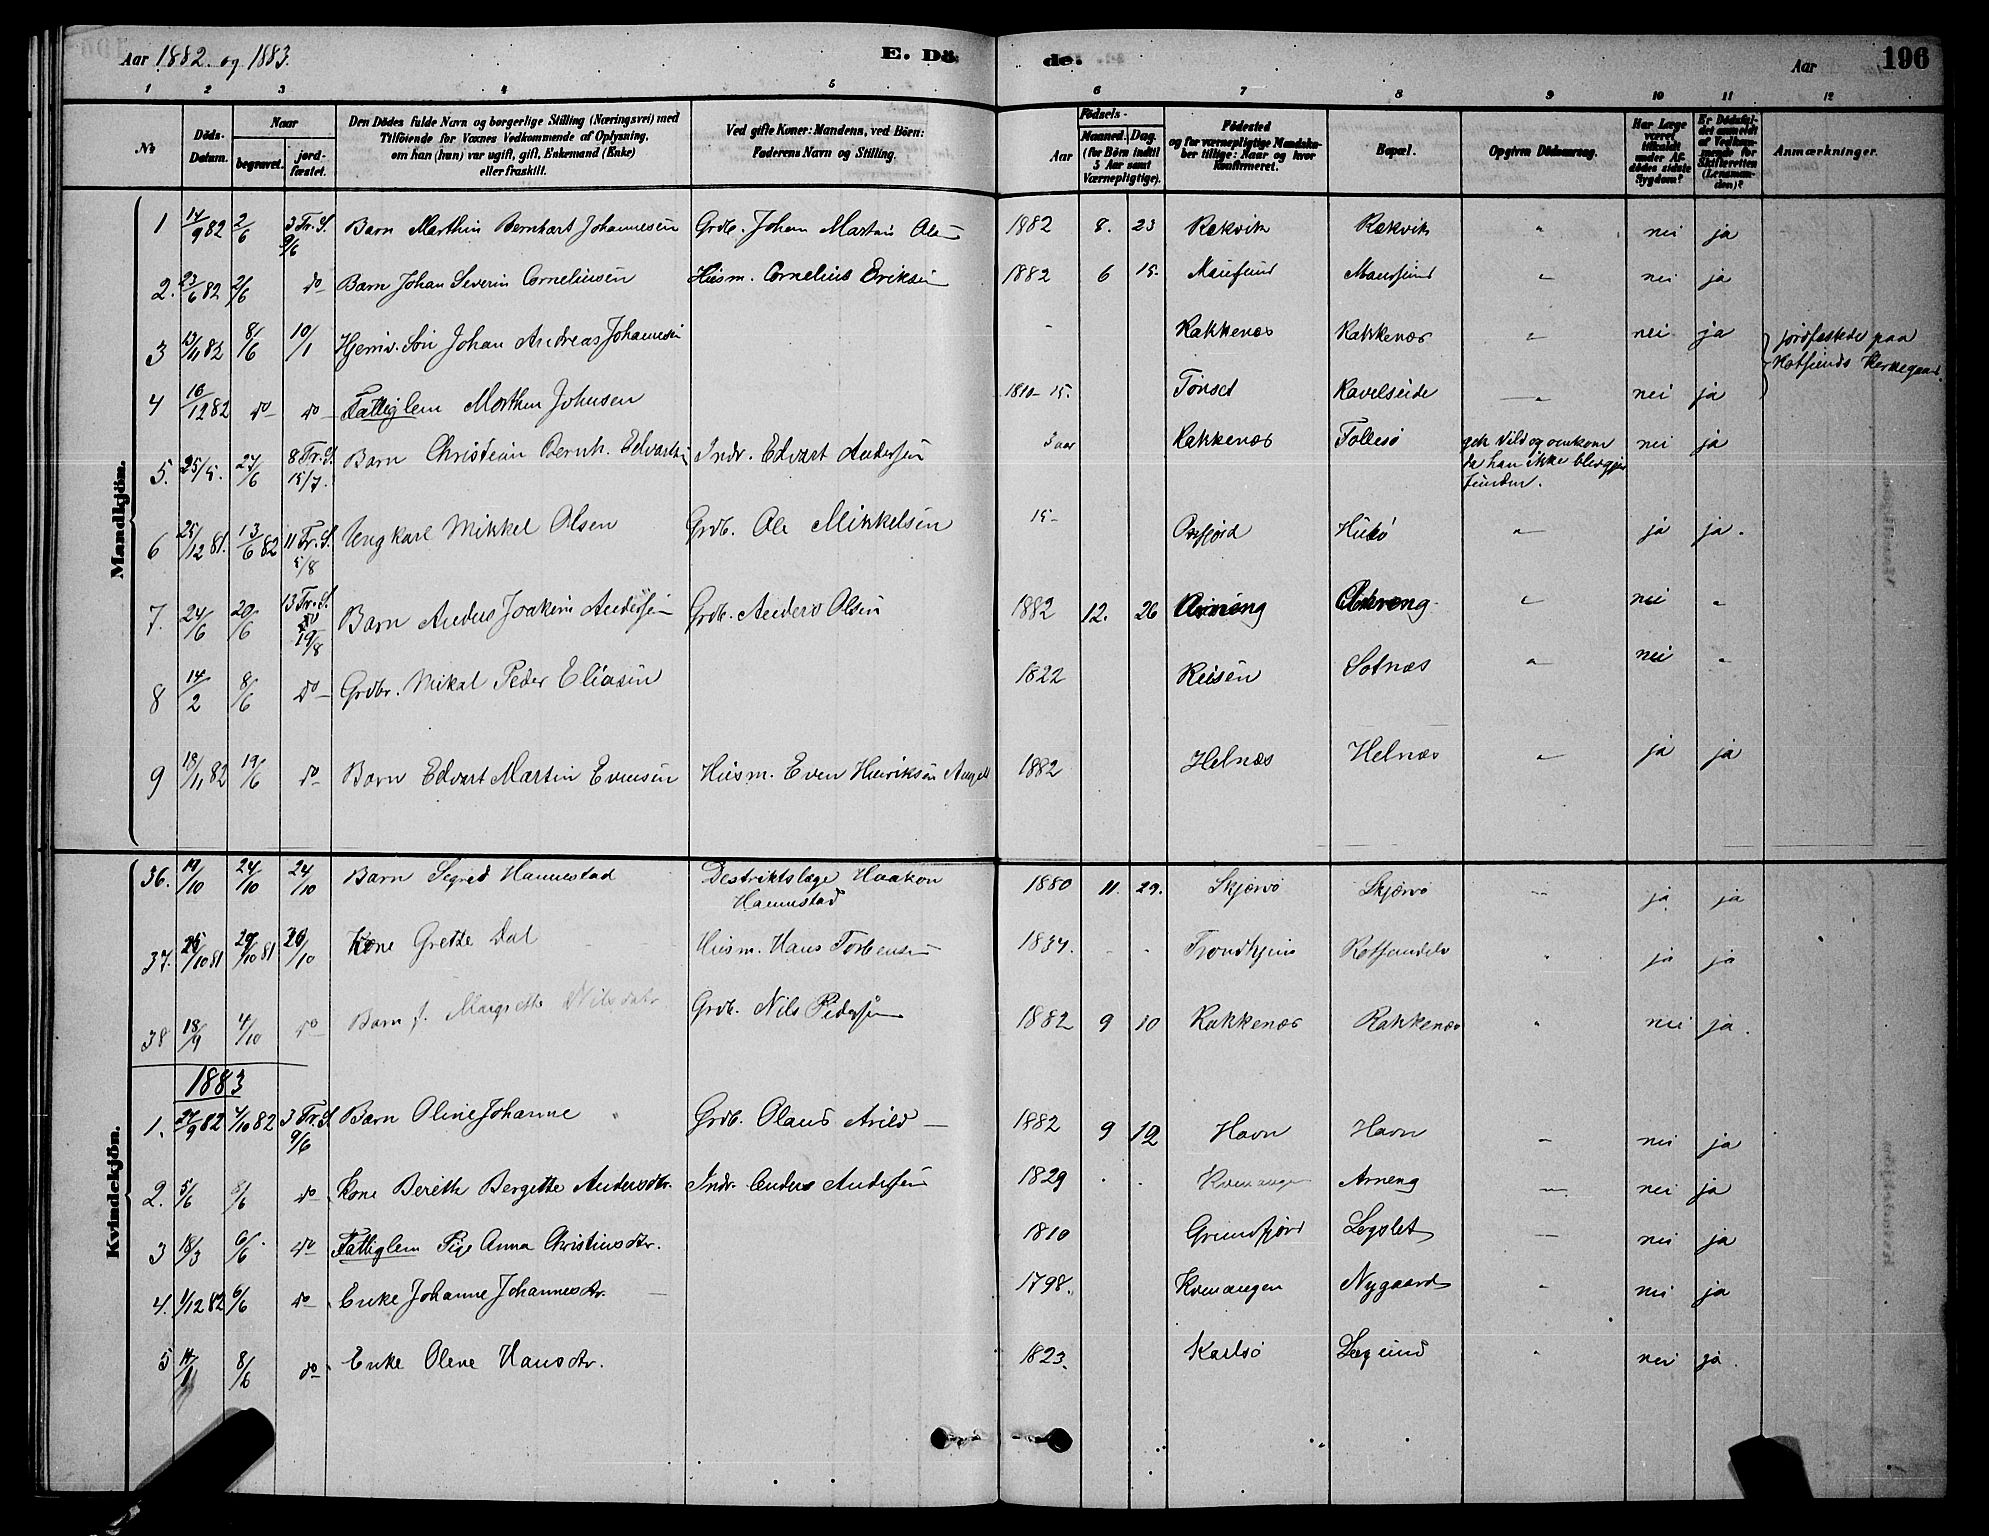 Aar 1882 og 1883.
E. Dö
de.
Aar
196
1 2 3 4 5 6 7 8 9 10 11 12
No
Döds-
Datum.
Naar
begravet.
jord-
fæstet.
Den Dödes fulde Navn og borgerlige Stilling (Næringsvei) med
Tilföiende for Voxnes Vedkommende af Oplysning,
om han (hun) var ugift, gift, Enkemand (Enke)
eller fraskilt.
Ved gifte Koner: Mandens, ved Börn:
Faderens Navn og Stilling.
Födsels-
Aar
Maaned.
Dag.
(for Börn indtil
5 Aar samt
Værnepligtige).
Födested
og for værnepligtige Mandska-
ber tillige: Naar og hvor
konfirmeret.
Bopæl.
Opgiven Dödsaarsag.
Har Læge
været
tilkaldt
under Af-
dödes sidste
Sygdom?
Er Dödsfal-
det anmeldt
af Vedkom-
mende for
Skifteretten
(Lensman-
den)?
Anmærkninger.
Mandkjön.
1 14/9 82 2/6 3 Tr. S. 9/6 Barn Marthin Bernhart Johannesen Grdb. Johan Martin 1882 8. 23 Rakvik Rakvik " nei ja
2. 23/6 82 2/6 do Barn Johan Severin Corneliusen Husm. Cornelius Eriksen 1882 6 15. Maursund " nei ja
3 13/11 82 8/6 10/1 Søn Johan Andreas Johannesen - Rakkenæs Rakkenæs " nei ja jordfæstede paa
4 16/12 82 do do Fattiglem Morthen Johnsen 1810 - 15. Tønset Ravelseide " nei ja Kirkegaard.
5. 25/5. 27/6 8 Tr. S. 15/7. Barn Christian Bernh. Edvartsen Indr. Edvart Andersen 3 aar Rakkenæs Follesø gik vild og omkom
da han ikke blev gjen
funden. nei ja
6 25/12 81. 13/6 82 11 Tr. S. 5/8 Ungkarl Mikkel Olsen Grdb. Ole Mikkelsen 15- Oxfjord " ja ja.
7. 24/6 20/6 13 Tr. S. 19/8 Barn Anders Joakim Andersen Grdb. Anders Olsen 1882 12. 26 " nei "
8 14/2 8/6 do Grdbr. Mikal Peder Eliasen 1822 Reisen Sotnæs " nei "
9 18/11 82 19/6 do Barn Edvart Martin Evensen Husm. Even Henriksen 1882 Helnæs Helnæs " ja ja
Kvindekjön.
36. 19/10 24/10 24/10 Barn Segred Hannestad Destriktslæge Haakon
Hannestad 1880 11. 29. Skjærvø Skjærvø ja ja
37. 25/10 81 29/10 81 20/10 Kone Grethe Dal Husm. Hans Torbensen 1834. - - Trondhjem " ja ja
38 18/9 4/10 do Barn f. Margrethe Nilsdatr Grdb. Nils Pedersen 1882 9 10 Rakkenæs Rakkenæs " nei ja.
1883
1. 27/9 82 4/10 82 3 Tr. S. 9/6 Barn Oline Johanne Grdb. Olaus Arild 1882 9 12 Havn Havn nei ja
2. 5/6 8/6 do Kone Berethe Bergette Andersdtr. Indr. Anders Andersen 1829 . . Kvenangen Arneng nei ja
3 18/3 6/6 do Fattiglem Pige Anna Christiansdtr. 1810 Grundfjord nei ja
4. 1/12 82 6/6 do Enke Johanne Johannesdtr. 1798. Kvenangen Nygaard nei ja
5 8/6 do Enke Olene Hansdtr. 1823. Karlsø Løgsund " nei ja.